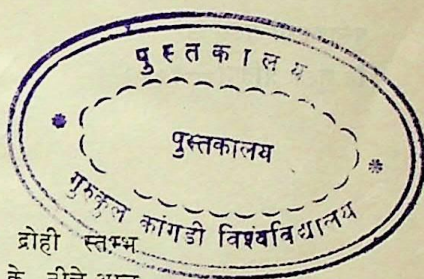 पुस्तकालय
पुस्तकालय
गुरुकुल कांगडी विश्वविद्यालय
द्रोही स्तम्भ
के नीचे